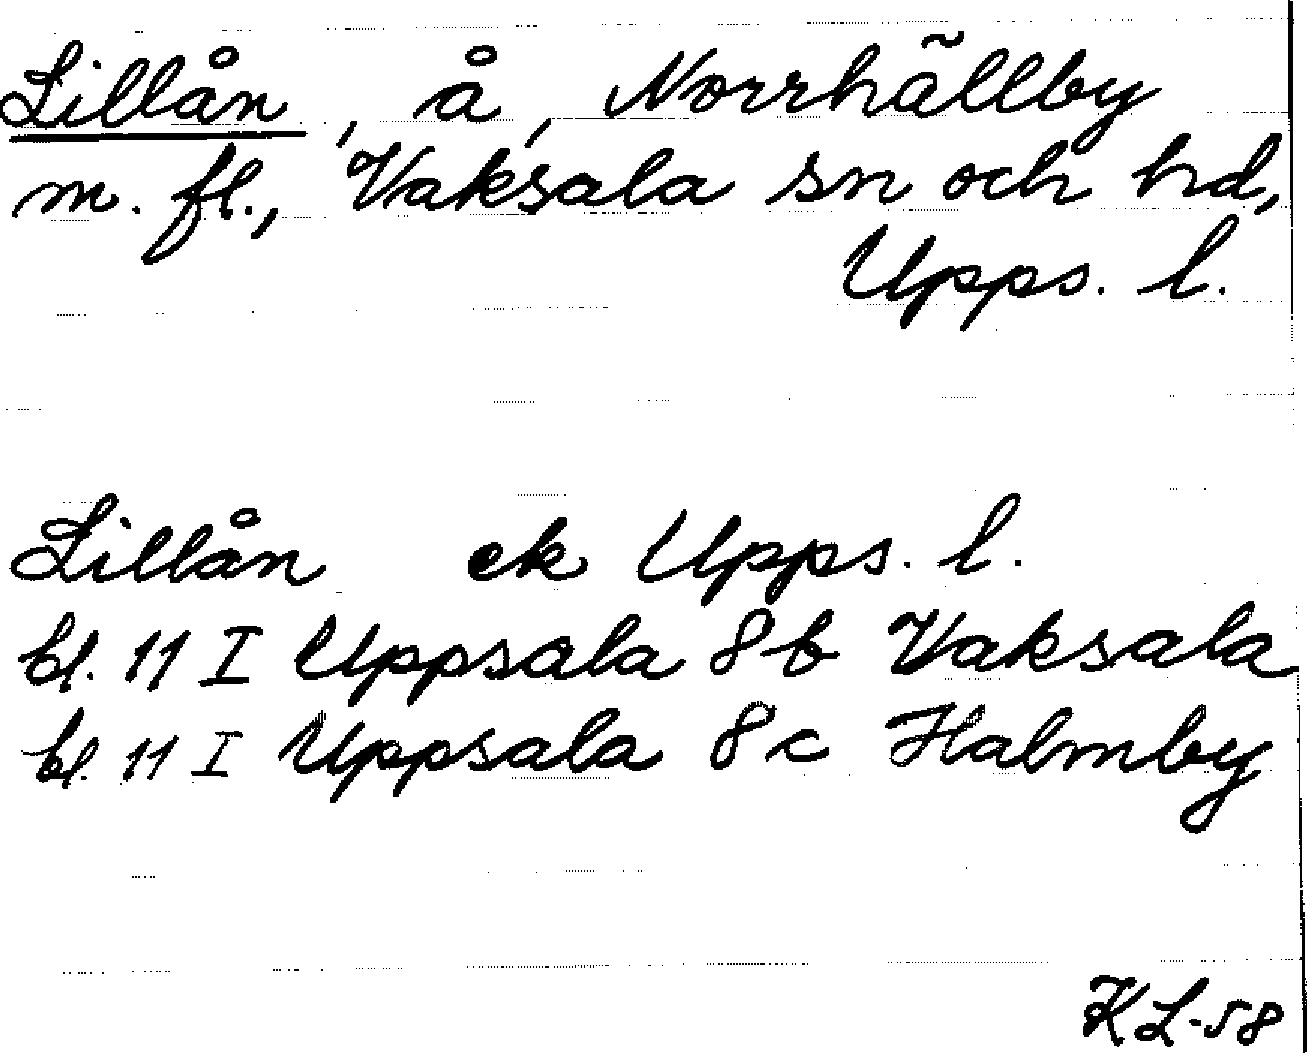 Lillån, å, Norrhällby
m. fl., Vaksala sn och hd,
Upps. l.
Lillån ek Upps. l.
bl. 11 I Uppsala 8b Vaksala
bl. 11 I Uppsala 8c Halmby
KL-58